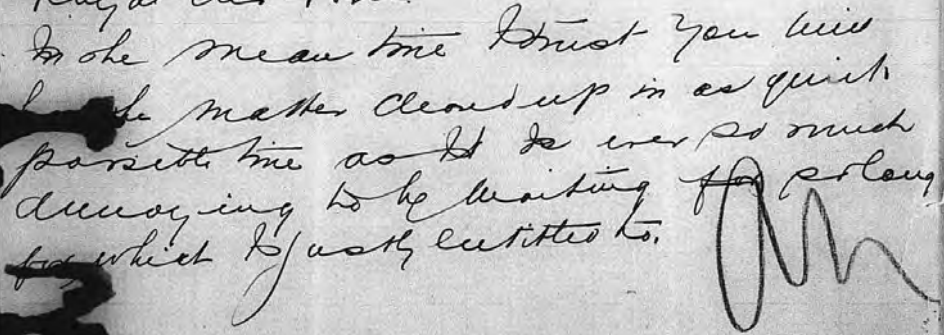 In the mean time I trust You will
the matter cleared up in as quick
possible time as It Is ever so much
annoying to be Waiting for so long
for which Is justly Entitled to.